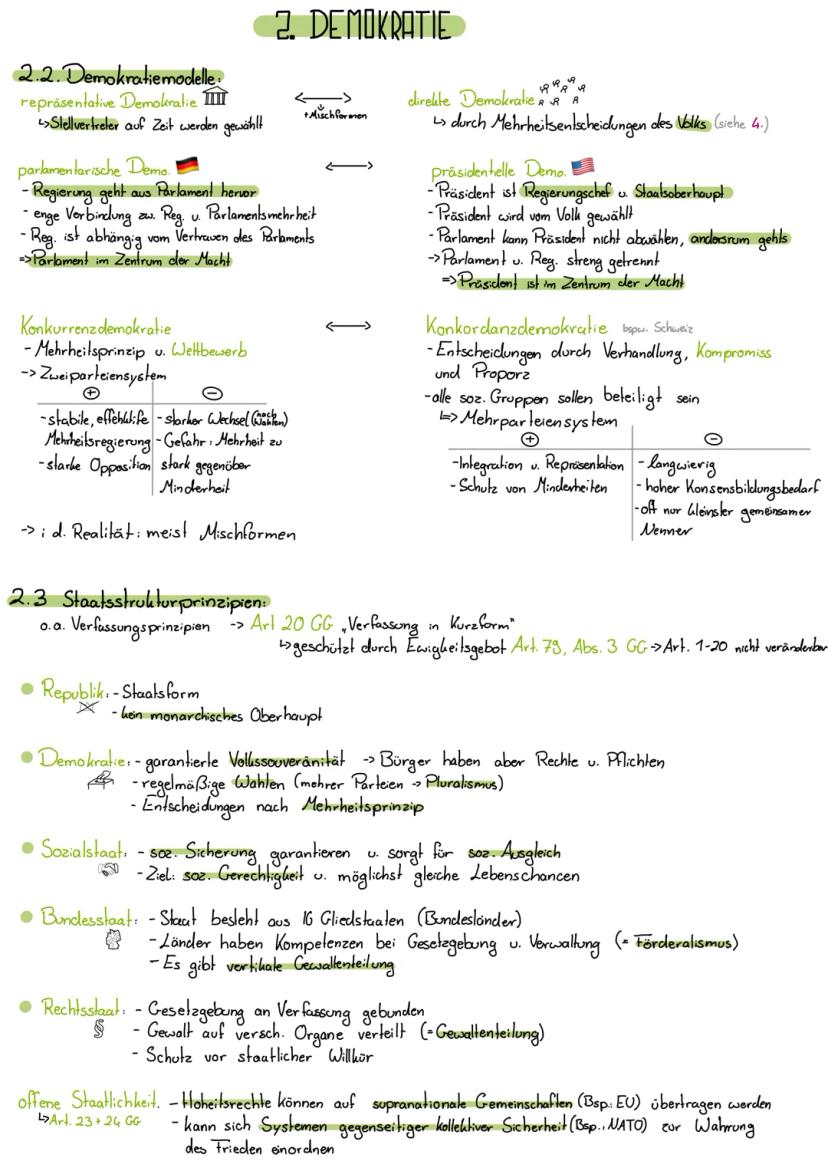 2. DEMOKRATIE
2.2. Demokratiemodelle:
repräsentative Demokratie
↳ Stellvertreter auf Zeit werden gewählt
+Mischformen
direkte Demokratie
↳ durch Mehrheitsentscheidungen des Volks (siehe 4.)
parlamentarische Demo.
- Regierung geht aus Parlament hervor
- enge Verbindung zw. Reg. u. Parlamentsmehrheit
- Reg. ist abhängig vom Vertrauen des Parlaments
=> Parlament im Zentrum der Macht
präsidentielle Demo.
- Präsident ist Regierungschef u. Staatsoberhaupt
- Präsident wird vom Volk gewählt
- Parlament kann Präsident nicht abwählen, andersrum gehts
-> Parlament u. Reg. streng getrennt
=> Präsident ist im Zentrum der Macht
Konkurrenzdemokratie
- Mehrheitsprinzip u. Wettbewerb
-> Zweiparteiensystem
+ -
- stabile, effektive
Mehrheitsregierung
- starke Opposition
- starker Wechsel (nach Wahlen)
- Gefahr: Mehrheit zu
stark gegenüber
Minderheit
-> i d. Realität: meist Mischformen
Konkordanzdemokratie bspw. Schweiz
- Entscheidungen durch Verhandlung, Kompromiss
und Proporz
- alle soz. Gruppen sollen beteiligt sein
=> Mehrparteiensystem
+ -
- Integration u. Repräsentation
- Schutz von Minderheiten
- langwierig
- hoher Konsensbildungsbedarf
- oft nur kleinster gemeinsamer
Nenner
2.3 Staatsstrukturprinzipien:
o.a. Verfassungsprinzipien -> Art 20 GG „Verfassung in Kurzform"
↳ geschützt durch Ewigkeitsgebot Art. 79, Abs. 3 GG -> Art. 1-20 nicht veränderbar
Republik: - Staatsform
- kein monarchisches Oberhaupt
Demokratie: - garantierte Volkssouveränität -> Bürger haben aber Rechte u. Pflichten
- regelmäßige Wahlen (mehrer Parteien -> Pluralismus)
- Entscheidungen nach Mehrheitsprinzip
Sozialstaat: - soz. Sicherung garantieren u. sorgt für soz. Ausgleich
- Ziel: soz. Gerechtigkeit u. möglichst gleiche Lebenschancen
Bundesstaat: - Staat besteht aus 16 Gliedstaaten (Bundesländer)
- Länder haben Kompetenzen bei Gesetzgebung u. Verwaltung (= Förderalismus)
- Es gibt vertikale Gewaltenteilung
Rechtsstaat: - Gesetzgebung an Verfassung gebunden
§ - Gewalt auf versch. Organe verteilt (= Gewaltenteilung)
- Schutz vor staatlicher Willkür
offene Staatlichkeit. - Hoheitsrechte können auf supranationale Gemeinschaften (Bsp.: EU) übertragen werden
↳ Art. 23 + 24 GG - kann sich Systemen gegenseitiger kollektiver Sicherheit (Bsp.: NATO) zur Wahrung
des Frieden einordnen